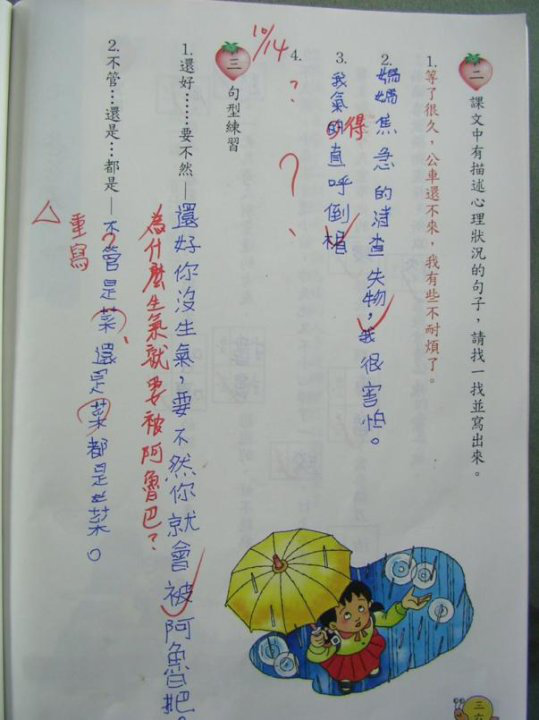 二 課文中有描述心理狀況的句子，請找一找並寫出來。
1. 等了很久，公車還不來，我有些不耐煩了。
2. 媽媽焦急的清查失物，我很害怕。
3. 我氣的直呼倒楣
得
4. ？ ？、
10/14
三 句型練習
1. 還好……要不然—還好你沒生氣，要不然你就會被阿魯把。
為什麼生氣就要被阿魯巴？
2. 不管…還是…都是—不管是菜還是菜都是菜。
？
△ 重寫
三六